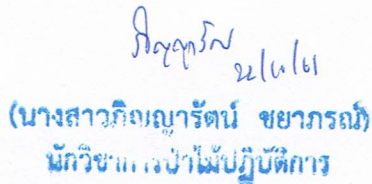 ภิญญารัตน์
(นางสาวภิญญารัตน์ ขยาภรณ์)
นักวิชาการป่าไม้ปฏิบัติการ